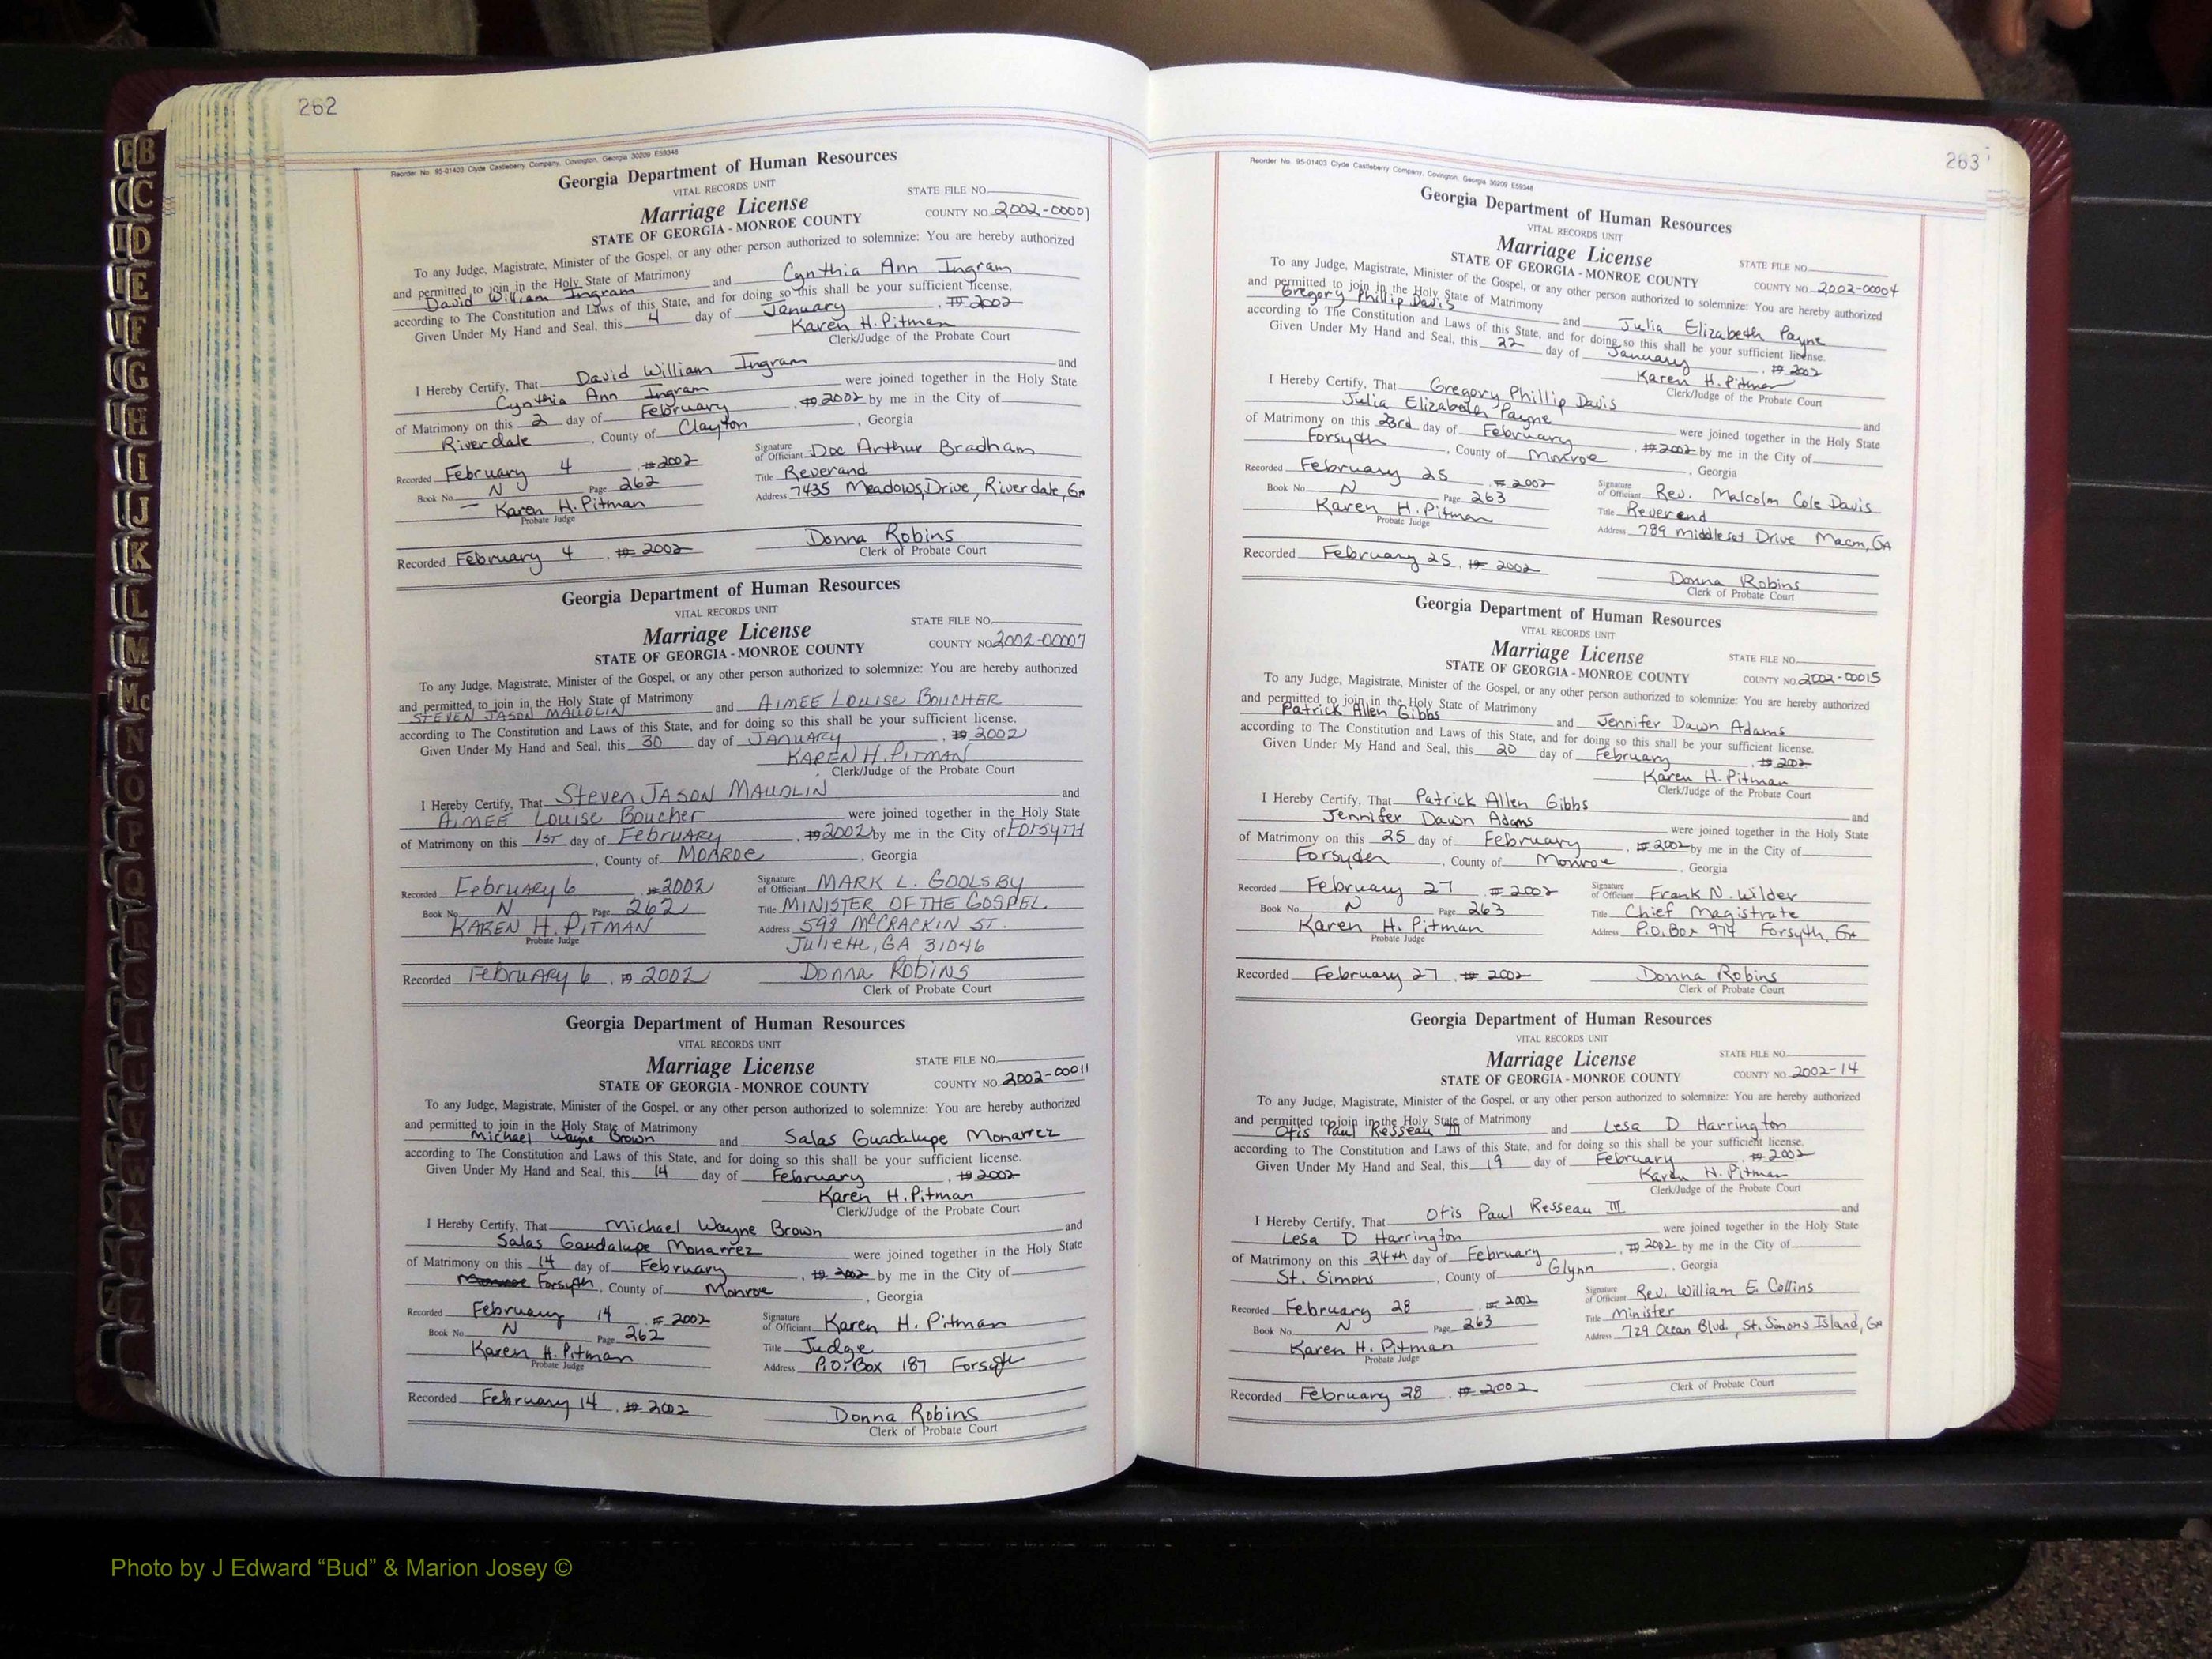 262
Reorder No. 95-01403 Clyde Castleberry Company, Covington, Georgia 30209 E59348
Georgia Department of Human Resources
VITAL RECORDS UNIT
Marriage License
STATE OF GEORGIA - MONROE COUNTY
STATE FILE NO.
COUNTY NO. 2002-00001
To any Judge, Magistrate, Minister of the Gospel, or any other person authorized to solemnize: You are hereby authorized
and permitted to join in the Holy State of Matrimony
David William Ingram and Cynthia Ann Ingram
according to The Constitution and Laws of this State, and for doing so this shall be your sufficient license.
Given Under My Hand and Seal, this 4 day of January, 19 2002
Karen H. Pitman
Clerk/Judge of the Probate Court
I Hereby Certify, That David William Ingram and
Cynthia Ann Ingram were joined together in the Holy State
of Matrimony on this 2 day of February, 19 2002 by me in the City of
Riverdale, County of Clayton, Georgia
Recorded February 4 19 2002
Book No. N Page 262
Karen H. Pitman
Probate Judge
Signature of Officiant Doc Arthur Bradham
Title Reverand
Address 7435 Meadows Drive, Riverdale, Ga
Recorded February 4, 19 2002
Donna Robins
Clerk of Probate Court
Georgia Department of Human Resources
VITAL RECORDS UNIT
Marriage License
STATE OF GEORGIA - MONROE COUNTY
STATE FILE NO.
COUNTY NO. 2002-00007
To any Judge, Magistrate, Minister of the Gospel, or any other person authorized to solemnize: You are hereby authorized
and permitted to join in the Holy State of Matrimony
STEVEN JASON MAUDLIN and AIMEE LOUISE BOUCHER
according to The Constitution and Laws of this State, and for doing so this shall be your sufficient license.
Given Under My Hand and Seal, this 30 day of JANUARY, 19 2002
KAREN H. PITMAN
Clerk/Judge of the Probate Court
I Hereby Certify, That Steven JASON MAUDLIN and
AIMEE Louise Boucher were joined together in the Holy State
of Matrimony on this 1ST day of FebruARY, 19 2002 by me in the City of FORSYTH
, County of MONROE, Georgia
Recorded FebruARY 6 19 2002
Book No. N Page 262
KAREN H. PITMAN
Probate Judge
Signature of Officiant MARK L. GOOLSBY
Title MINISTER OF THE GOSPEL
Address 598 McCRACKIN ST.
Juliette, GA 31046
Recorded FebruARY 6, 19 2002
DONNA ROBINS
Clerk of Probate Court
Georgia Department of Human Resources
VITAL RECORDS UNIT
Marriage License
STATE OF GEORGIA - MONROE COUNTY
STATE FILE NO.
COUNTY NO. 2002-00011
To any Judge, Magistrate, Minister of the Gospel, or any other person authorized to solemnize: You are hereby authorized
and permitted to join in the Holy State of Matrimony
Michael Wayne Brown and Salas Guadalupe Monarrez
according to The Constitution and Laws of this State, and for doing so this shall be your sufficient license.
Given Under My Hand and Seal, this 14 day of February, 19 2002
Karen H. Pitman
Clerk/Judge of the Probate Court
I Hereby Certify, That Michael Wayne Brown and
Salas Gaudalupe Monarrez were joined together in the Holy State
of Matrimony on this 14 day of February, 19 2002 by me in the City of
Monroe Forsyth, County of Monroe, Georgia
Recorded February 14 19 2002
Book No. N Page 262
Karen H. Pitman
Probate Judge
Signature of Officiant Karen H. Pitman
Title Judge
Address P.O. Box 187 Forsyth
Recorded February 14, 19 2002
Donna Robins
Clerk of Probate Court
263
Reorder No. 95-01403 Clyde Castleberry Company, Covington, Georgia 30209 E59348
Georgia Department of Human Resources
VITAL RECORDS UNIT
Marriage License
STATE OF GEORGIA - MONROE COUNTY
STATE FILE NO.
COUNTY NO. 2002-00004
To any Judge, Magistrate, Minister of the Gospel, or any other person authorized to solemnize: You are hereby authorized
and permitted to join in the Holy State of Matrimony
Gregory Phillip Davis and Julia Elizabeth Payne
according to The Constitution and Laws of this State, and for doing so this shall be your sufficient license.
Given Under My Hand and Seal, this 22 day of January, 19 2002
Karen H. Pitman
Clerk/Judge of the Probate Court
I Hereby Certify, That Gregory Phillip Davis and
Julia Elizabeth Payne were joined together in the Holy State
of Matrimony on this 23rd day of February, 19 2002 by me in the City of
Forsyth, County of Monroe, Georgia
Recorded February 25 19 2002
Book No. N Page 263
Karen H. Pitman
Probate Judge
Signature of Officiant Rev. Malcolm Cole Davis
Title Reverend
Address 789 Middleset Drive Macon, GA
Recorded February 25, 19 2002
Donna Robins
Clerk of Probate Court
Georgia Department of Human Resources
VITAL RECORDS UNIT
Marriage License
STATE OF GEORGIA - MONROE COUNTY
STATE FILE NO.
COUNTY NO. 2002-00015
To any Judge, Magistrate, Minister of the Gospel, or any other person authorized to solemnize: You are hereby authorized
and permitted to join in the Holy State of Matrimony
Patrick Allen Gibbs and Jennifer Dawn Adams
according to The Constitution and Laws of this State, and for doing so this shall be your sufficient license.
Given Under My Hand and Seal, this 20 day of February, 19 2002
Karen H. Pitman
Clerk/Judge of the Probate Court
I Hereby Certify, That Patrick Allen Gibbs and
Jennifer Dawn Adams were joined together in the Holy State
of Matrimony on this 25 day of February, 19 2002 by me in the City of
Forsyth, County of Monroe, Georgia
Recorded February 27 19 2002
Book No. N Page 263
Karen H. Pitman
Probate Judge
Signature of Officiant Frank N. Wilder
Title Chief Magistrate
Address P.O. Box 974 Forsyth, Ga
Recorded February 27, 19 2002
Donna Robins
Clerk of Probate Court
Georgia Department of Human Resources
VITAL RECORDS UNIT
Marriage License
STATE OF GEORGIA - MONROE COUNTY
STATE FILE NO.
COUNTY NO. 2002-14
To any Judge, Magistrate, Minister of the Gospel, or any other person authorized to solemnize: You are hereby authorized
and permitted to join in the Holy State of Matrimony
Otis Paul Resseau III and Lesa D Harrington
according to The Constitution and Laws of this State, and for doing so this shall be your sufficient license.
Given Under My Hand and Seal, this 19 day of February, 19 2002
Karen H. Pitman
Clerk/Judge of the Probate Court
I Hereby Certify, That Otis Paul Resseau III and
Lesa D Harrington were joined together in the Holy State
of Matrimony on this 24th day of February, 19 2002 by me in the City of
St. Simons, County of Glynn, Georgia
Recorded February 28 19 2002
Book No. N Page 263
Karen H. Pitman
Probate Judge
Signature of Officiant Rev. William E. Collins
Title Minister
Address 729 Ocean Blvd, St. Simons Island, Ga
Recorded February 28, 19 2002
Clerk of Probate Court
B
C
D
E
F
G
H
I
J
K
L
M
Mc
N
O
P
Q
R
Photo by J Edward “Bud” & Marion Josey ©